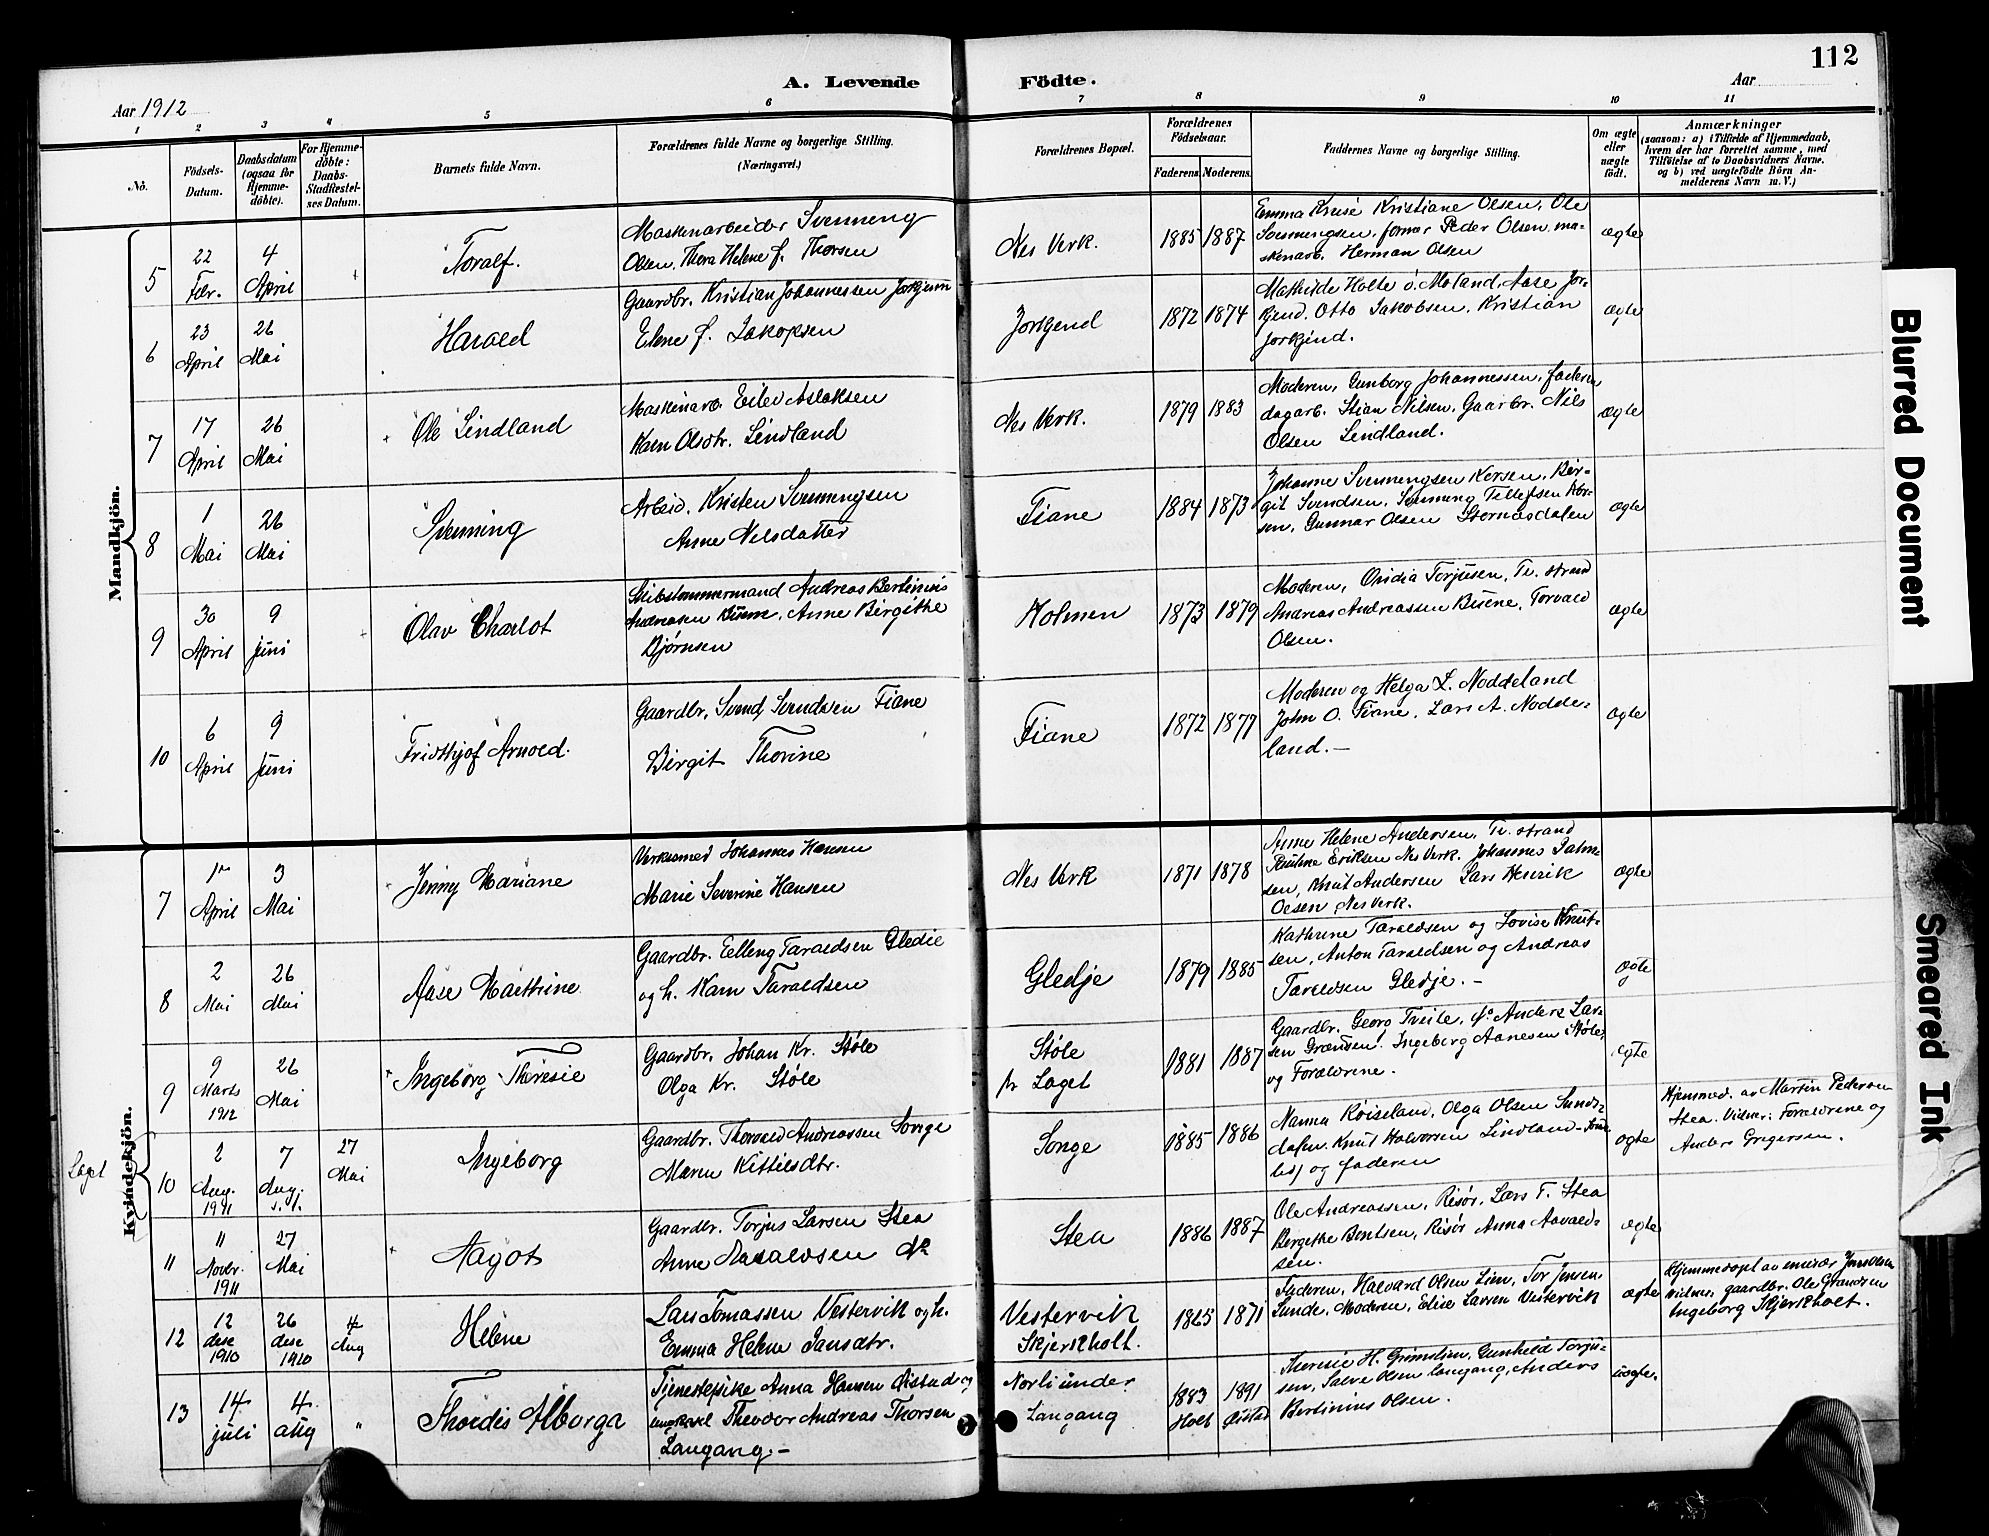 112
A. Levende Födte.
Aar 1912
Aar
1 2 3 4 5 6 7 8 9 10 11
No.
Födsels-Datum.
Daabsdatum (ogsaa for Hjemme-döbte).
For Hjemme-döbte: Daabs-Stadfæstel-ses Datum.
Barnets fulde Navn.
Forældrenes fulde Navne og borgerlige Stilling.
(Næringsvei.)
Forældrenes Bopæl.
Forældrenes Födselsaar.
Faderens. Moderens.
Faddernes Navne og borgerlige Stilling.
Om ægte eller uægte födt.
Anmærkninger
(saasom: a) i Tilfælde af Hjemmedaab,
hvem der har forrettet samme, med
Tilföielse af to Daabsvidners Navne,
og b) ved uægtefödte Börn An-
melderens Navn m. V.)
Mandkjön.
5 22 Febr. 4 April Toralf.
Maskinarbeider Svenning
Olsen, Thora Helene f. Thorsen
Nes Verk. 1885 1887
Emma Kruse Kristiane Olsen, Ole
Svenningsen, former Peder Olsen, ma-
skinarb. Herman Olsen
ægte
6 23 April 26 Mai Harald
Gaardbr. Kristian Johannessen Jorkjenn
Elene f. Jakopsen
Jorkjend 1872 1874
Mathilde Holte ö. Moland, Aase Jor-
kjend, Otto Jakobsen, Kristian
Jorkjend.
ægte
7 17 April 26 Mai Ole Lindland
Maskinarb. Eilev Aslaksen
Karn Olsdtr. Lindland
Nes Verk. 1879 1883
Moderen, Gunborg Johannessen, faderen
dagarb. Stian Nilsen, Gaarbr. Nils
Olsen Lindland.
ægte
8 1 Mai 26 Mai Svenning
Arbeid. Kristen Svenningsen
Anne Nilsdatter
Fiane 1884 1873
Johanne Svenningsen Korsen, Bir-
git Svendsen, Svenning Tellefsen Kor-
sen, Gunnar Olsen
ægte
9 30 April 9 Juni Olav Charlot
Skibstømmermand Andreas Bertinius
Andreasen Buene, Anne Birgithe
Bjørnsen
Holmen 1873 1879
Moderen, Ovidia Torjusen, Tv. strand
Andreas Andreassen Buene, Torvald
Olsen.
ægte
10 6 April 9 Juni Fridthjof Arnold.
Gaardbr, Svend Svendsen Fiane
Birgit Thorine
Fiane 1872 1877
Moderen og Helga L. Noddeland
John O. Fiane, Lars A. Nodde-
land.—
ægte
Kvindekjön.
7 1 April 3 Mai Jenny Mariane
Verksmed Johannes Hansen
Marie Severine Hansen
Nes Verk 1871 1878
Anne Helene Andersen, Tv. strand
Pauline Eriksen Nes Verk. Johannes
sen, Knut Andersen Lars Henrik
Olsen Nes Verk.
ægte
8 2 Mai 26 Mai Aase Marthine
Gaardbr. Elling Taraldsen Gledje
og h. Karn Taraldsen
Gledje 1879 1885
Kathrine Taraldsen og Lovise Knut-
sen, Anton Taraldsen og Andreas
Taraldsen Gledje.—
ægte
9 9 Marts 1912 26 Mai Ingeborg Theresie
Gaardbr, Johan Kr. Støle
Olga Kr. Støle
Støle
pr Laget 1881 1887
Gaardbr. Georg Tveite, do Anders Lar-
sen Grændsen. Ingeborg Aanesen Støle,
og Forældrene.
ægte
Laget
10 2 Aug. 1911 7 Aug. 27 Mai Ingeborg
Gaardbr. Thorvald Andreassen Songe
Maren Kittilsdtr.
Songe 1885 1886
Nanna Røiseland, Olga Olsen Sunds-
dalen. Knut Halvorsen Lindland
og faderen
ægte
Hjemmed. av Martin Pedersen
Stea. Vidner: Forældrene og
Anders Gregersen.
11 11 Novbr. 1911 27 Mai Aagot
Gaardbr. Torjus Larsen Stea
Anne Aavaldsen do
Stea 1886 1887
Ole Andreassen, Risør, Lars T. Stea
Bergithe Bentsen, Risør Anna Aavald-
sen.
ægte
12 12 dese 1910 26 dese 1910 Aug Helene
Lars Tomassen Vestervik og h.
Emma Helene Jansdtr.
Vestervik
Skjerkholt. 1865 1871
Faderen, Halvard Olsen Lien, Tor Jensen
Lunde, Moderen, Elise Larsen Vestervik
ægte
Hjemmedøpt av emisær Jens Olsen
vidner, gaardbr. Ole Grandsen
Ingeborg Skjerkholt.
13 14 juli 4 aug " Thordis Alborga
Tjenestepike Anna Hansen Øistad og
ungkarl Theodor Andreas Thorsen
Langang.—
Norli under
Langang
1883 Holt 1891 Øistad
Theresie H. Grimslien, Gunhild Torju-
sen, Salve Olsen Langang, Anders
Bertinius Olsen.
uægte.
Blurred Document
Smeared Ink